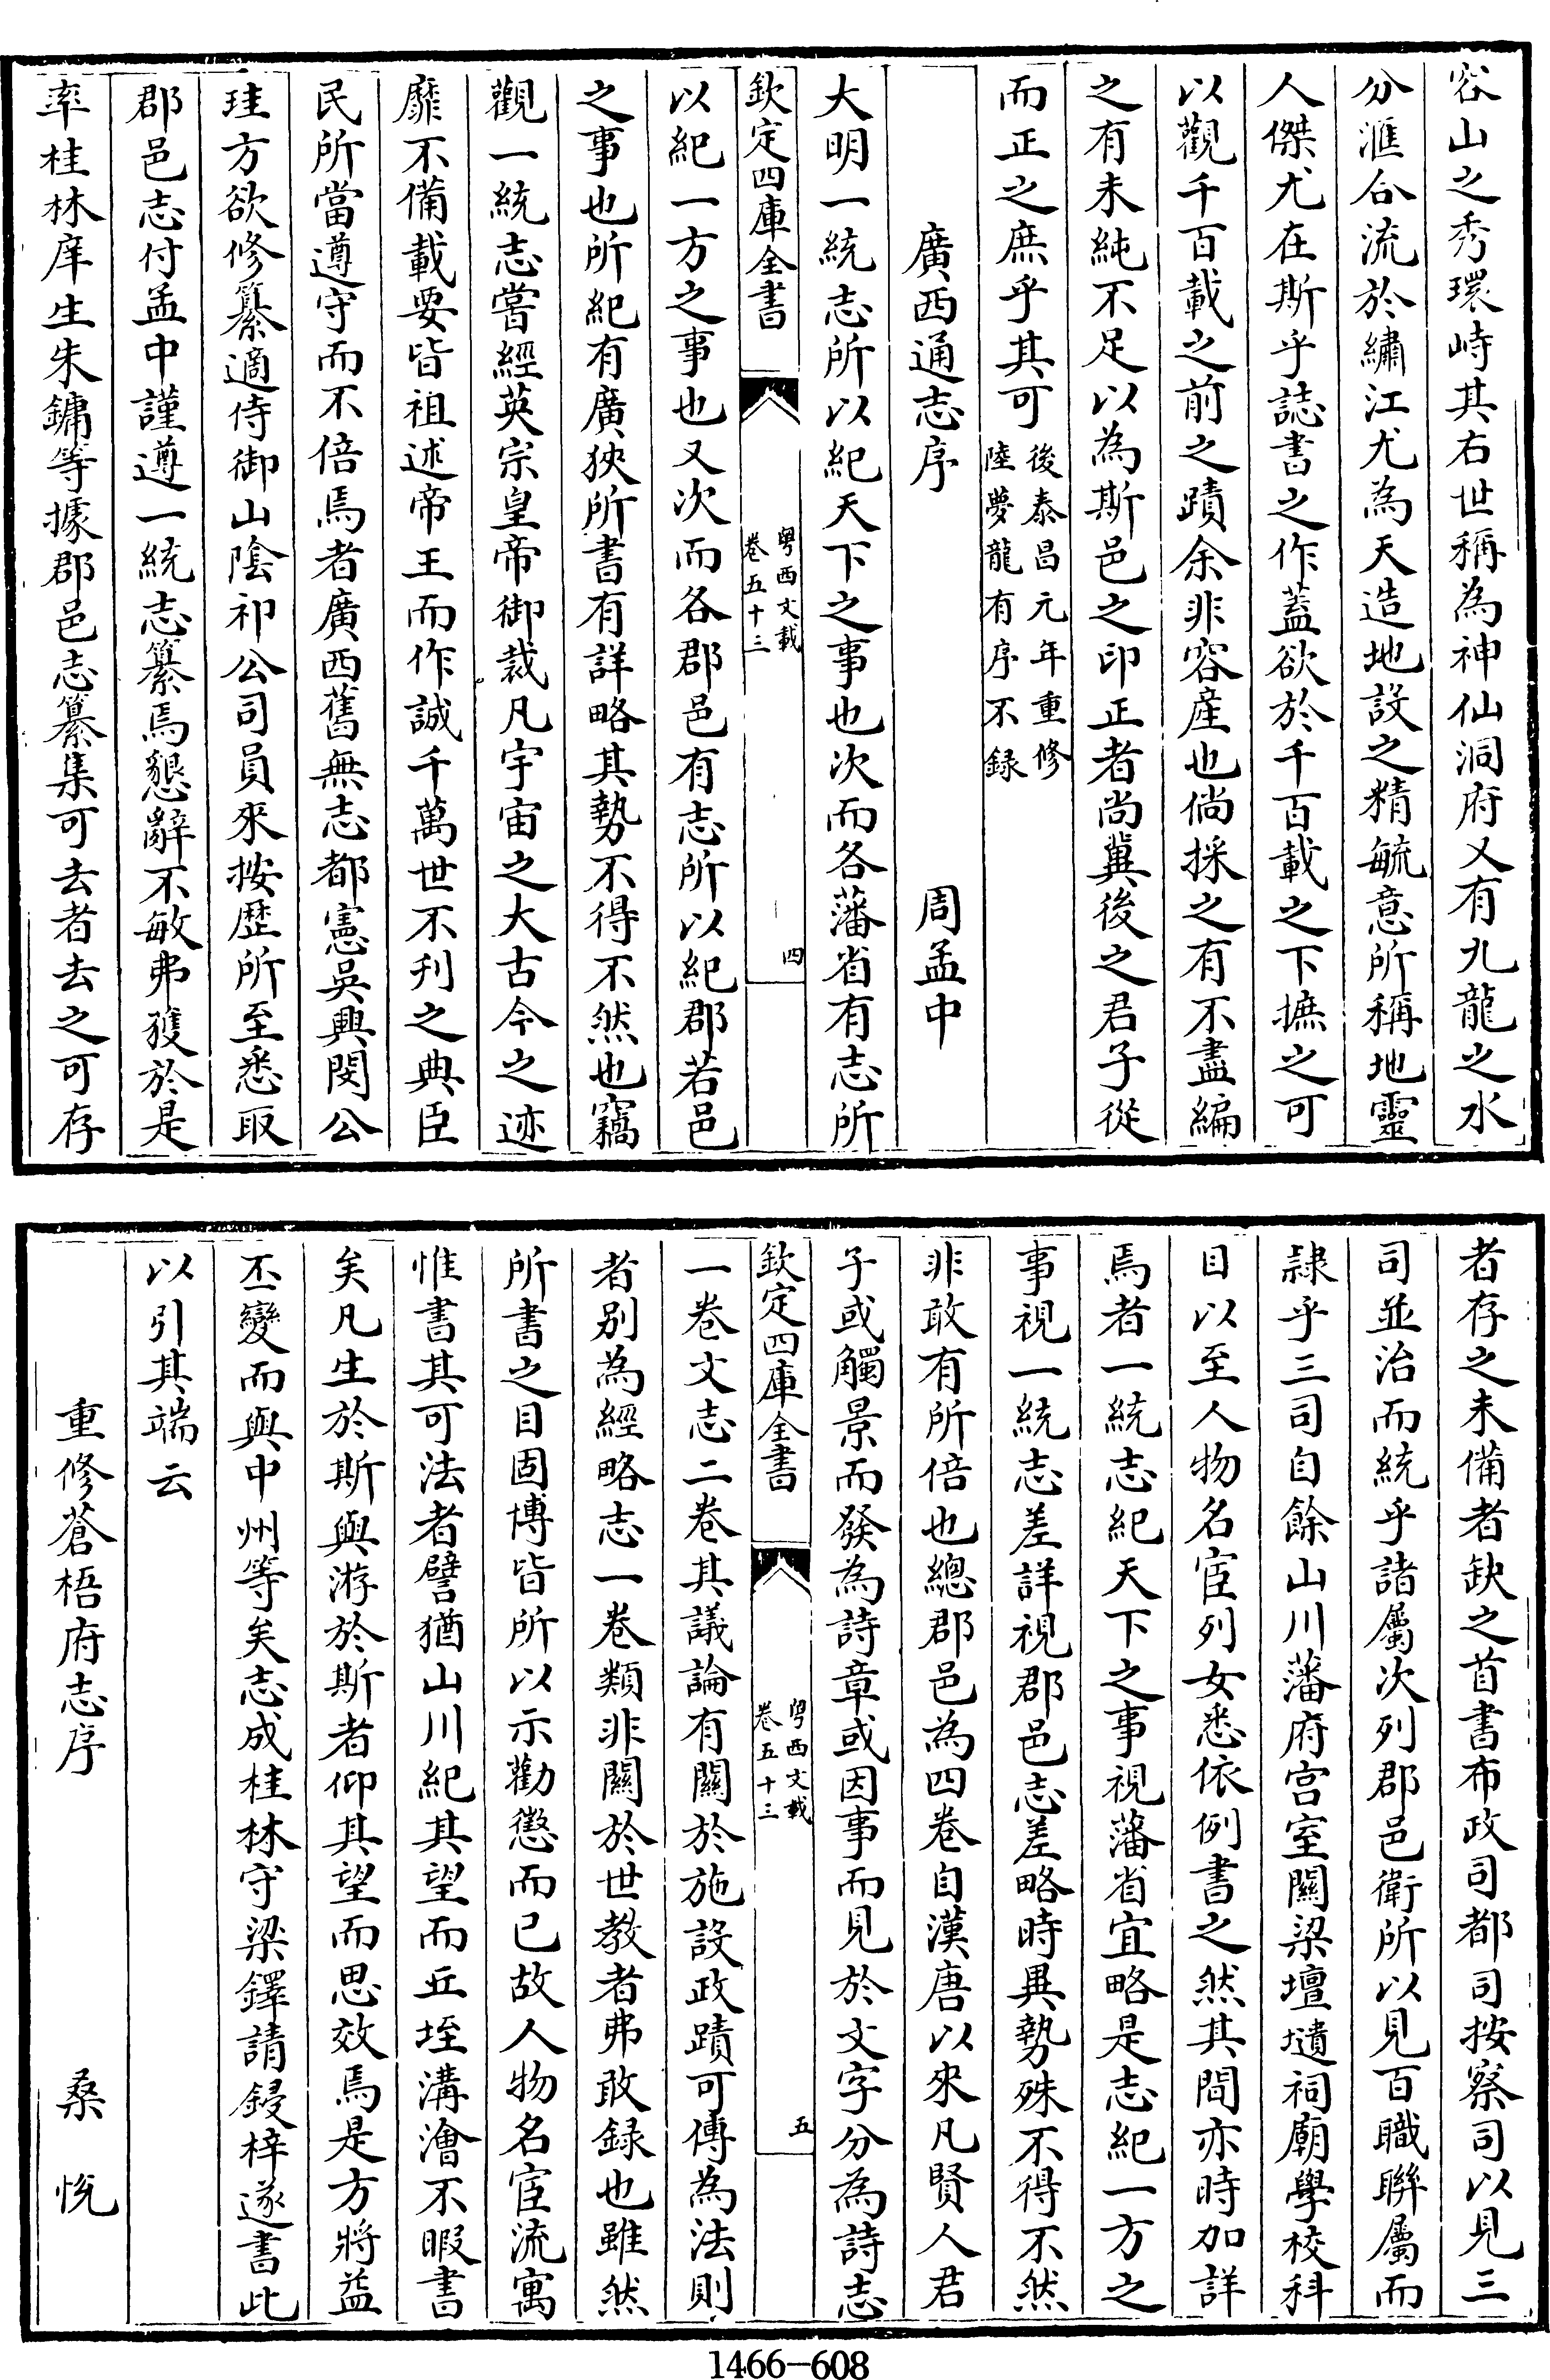 容山之秀環峙其右世稱為神仙洞府又有九龍之水
分滙合流於繡江尤為天造地設之精毓意所稱地靈
人傑尤在斯乎誌書之作蓋欲於千百載之下摭之可
以觀千百載之前之蹟余非容産也倘採之有不盡編
之有未純不足以為斯邑之印正者尚冀後之君子從
而正之庶乎其可後泰昌元年重修
陸夢龍有序不録
廣西通志序 周孟中
大明一統志所以紀天下之事也次而各藩省有志所
欽定四庫全書 粤西文載
卷五十三 四
以紀一方之事也又次而各郡邑有志所以紀郡若邑
之事也所紀有廣狹所書有詳略其勢不得不然也竊
觀一統志嘗經英宗皇帝御裁凡宇宙之大古今之迹
靡不備載要皆祖述帝王而作誠千萬世不刋之典臣
民所當遵守而不倍焉者廣西舊無志都憲吳興閔公
珪方欲修纂適侍御山陰祁公司員來按歴所至悉取
郡邑志付孟中謹遵一統志纂焉懇辭不敏弗獲於是
率桂林庠生朱鏞等據郡邑志纂集可去者去之可存
者存之未備者缺之首書布政司都司按察司以見三
司並治而統乎諸屬次列郡邑衛所以見百職聯屬而
隷乎三司自餘山川藩府宫室關梁壇壝祠廟學校科
目以至人物名宦列女悉依例書之然其間亦時加詳
焉者一統志紀天下之事視藩省宜略是志紀一方之
事視一統志差詳視郡邑志差略時異勢殊不得不然
非敢有所倍也總郡邑為四卷自漢唐以來凡賢人君
子或觸景而發為詩章或因事而見於文字分為詩志
欽定四庫全書 粤西文載
卷五十三 五
一卷文志二卷其議論有關於施設政蹟可傳為法則
者别為經略志一卷類非關於世教者弗敢録也雖然
所書之目固博皆所以示勸懲而已故人物名宦流寓
惟書其可法者譬猶山川紀其望而丘垤溝澮不暇書
矣凡生於斯與游於斯者仰其望而思效焉是方將益
丕變而與中州等矣志成桂林守梁鐸請鋟梓遂書此
以引其端云
重修蒼梧府志序 桑悦
1466-608